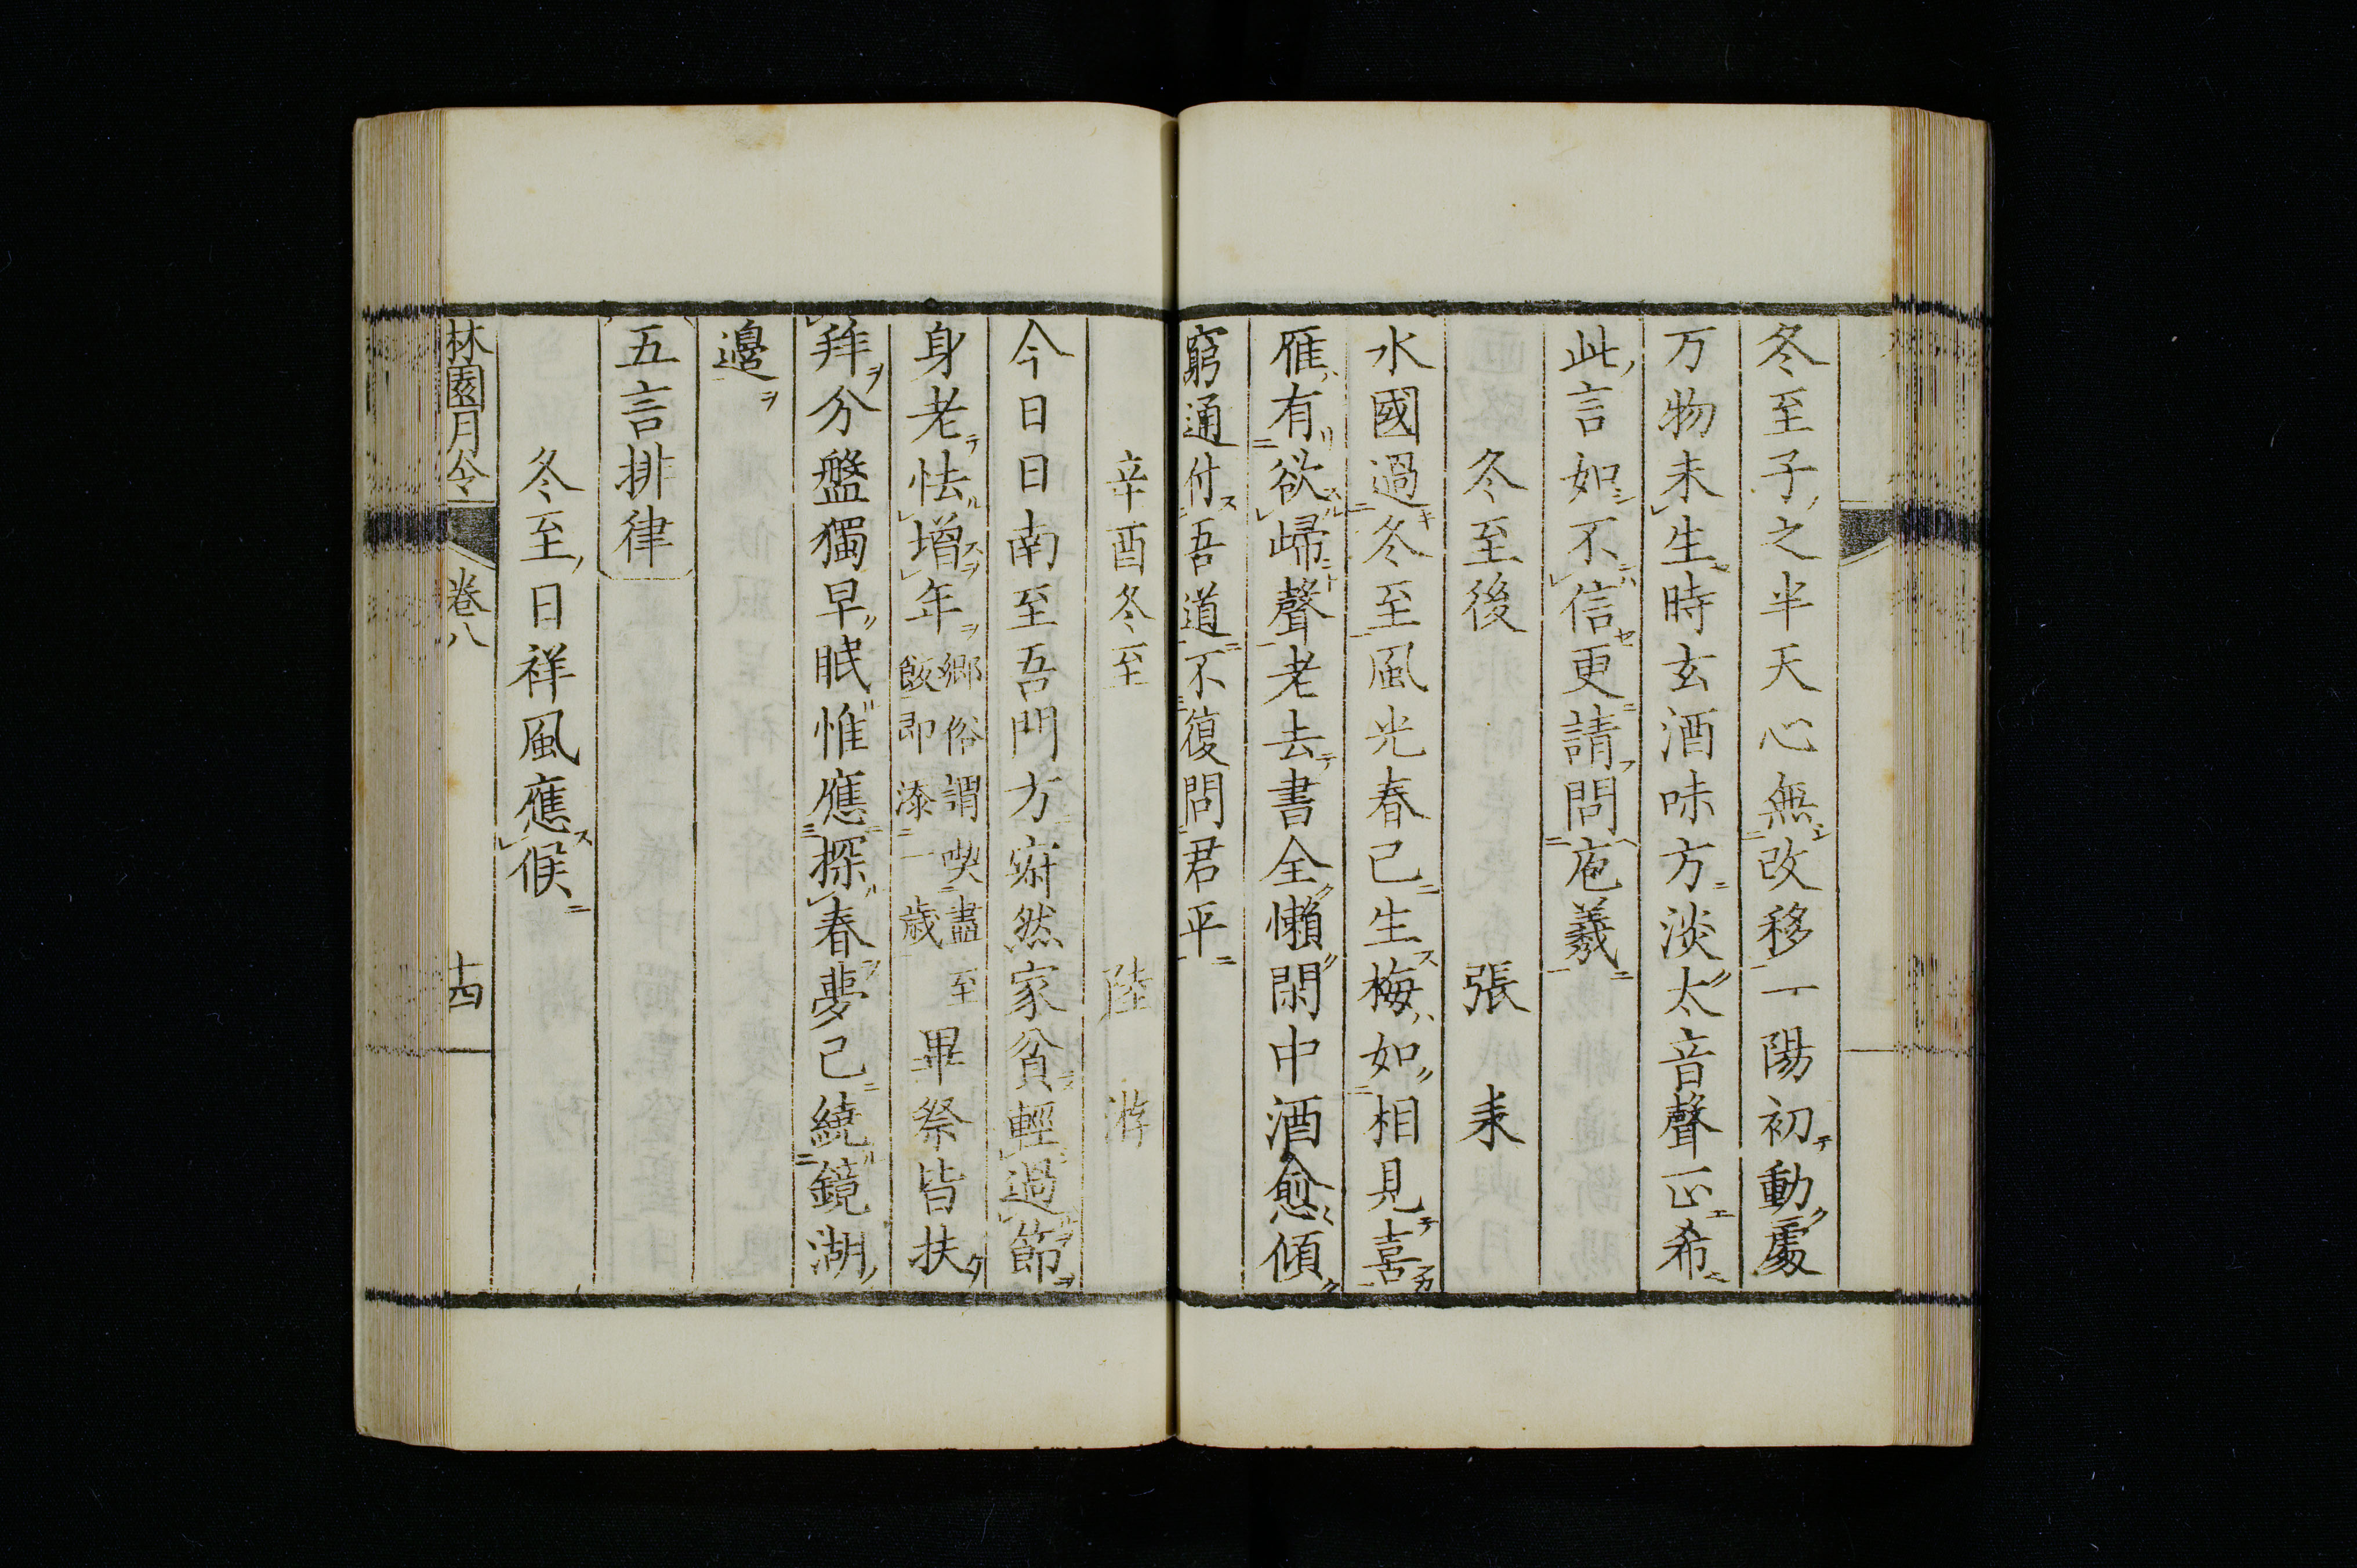 冬至子之半天心無改移一陽初動處
万物未生時玄酒味方淡太音聲正希
此言如不信更請問庖羲
冬至後 張耒
水國過冬至風光春已生梅如相見喜
雁有欲歸聲老去書全懶閑中酒愈傾
窮通付吾道不復問君平
辛酉冬至 陸游
今日日南至吾門方寂然家貧輕過節
身老怯增年 鄉俗謂喫盡至飯即添一歳 畢祭皆扶
拜分盤獨早眠惟應探春夢已繞鏡湖
邊
五言排律
冬至日祥風應候
林園月令 卷八 十四